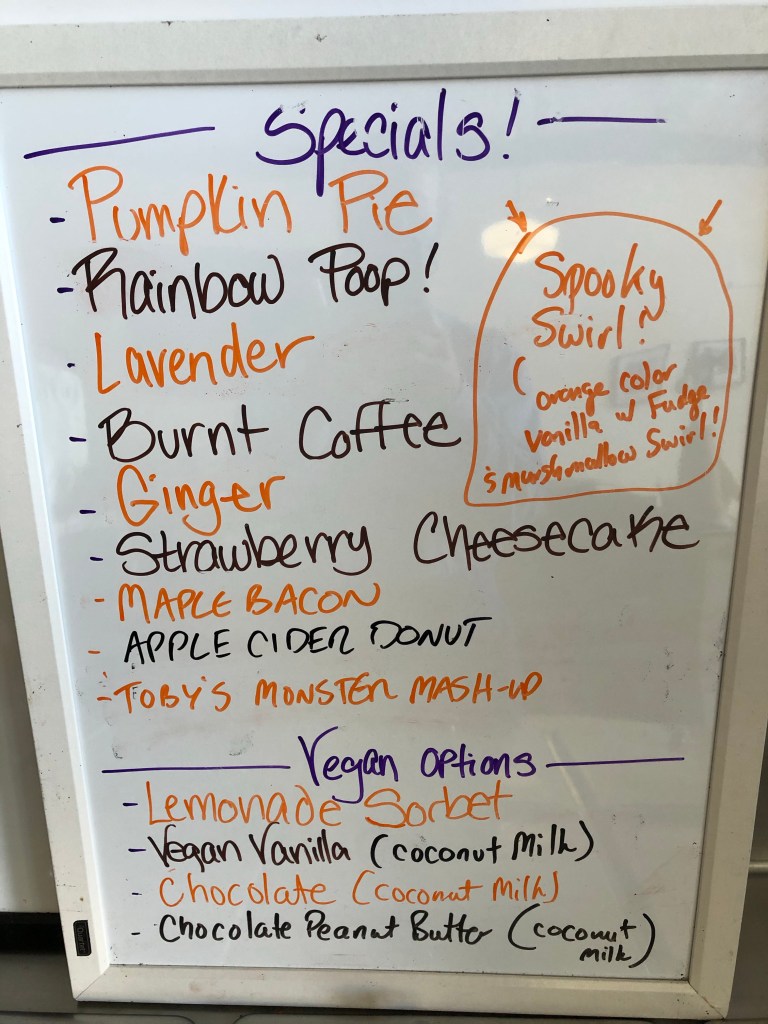 Specials!
- Pumpkin Pie
- Rainbow Poop!
- Lavender
- Burnt Coffee
- Ginger
- Strawberry Cheesecake
- MAPLE BACON
- APPLE CIDER DONUT
- TOBY'S MONSTER MASH-UP
Spooky
Swirl!
(orange color
vanilla w/ Fudge
& marshmallow Swirl!
Vegan Options
- Lemonade Sorbet
- Vegan Vanilla (coconut Milk)
- Chocolate (coconut Milk)
- Chocolate Peanut Butter (coconut
milk)